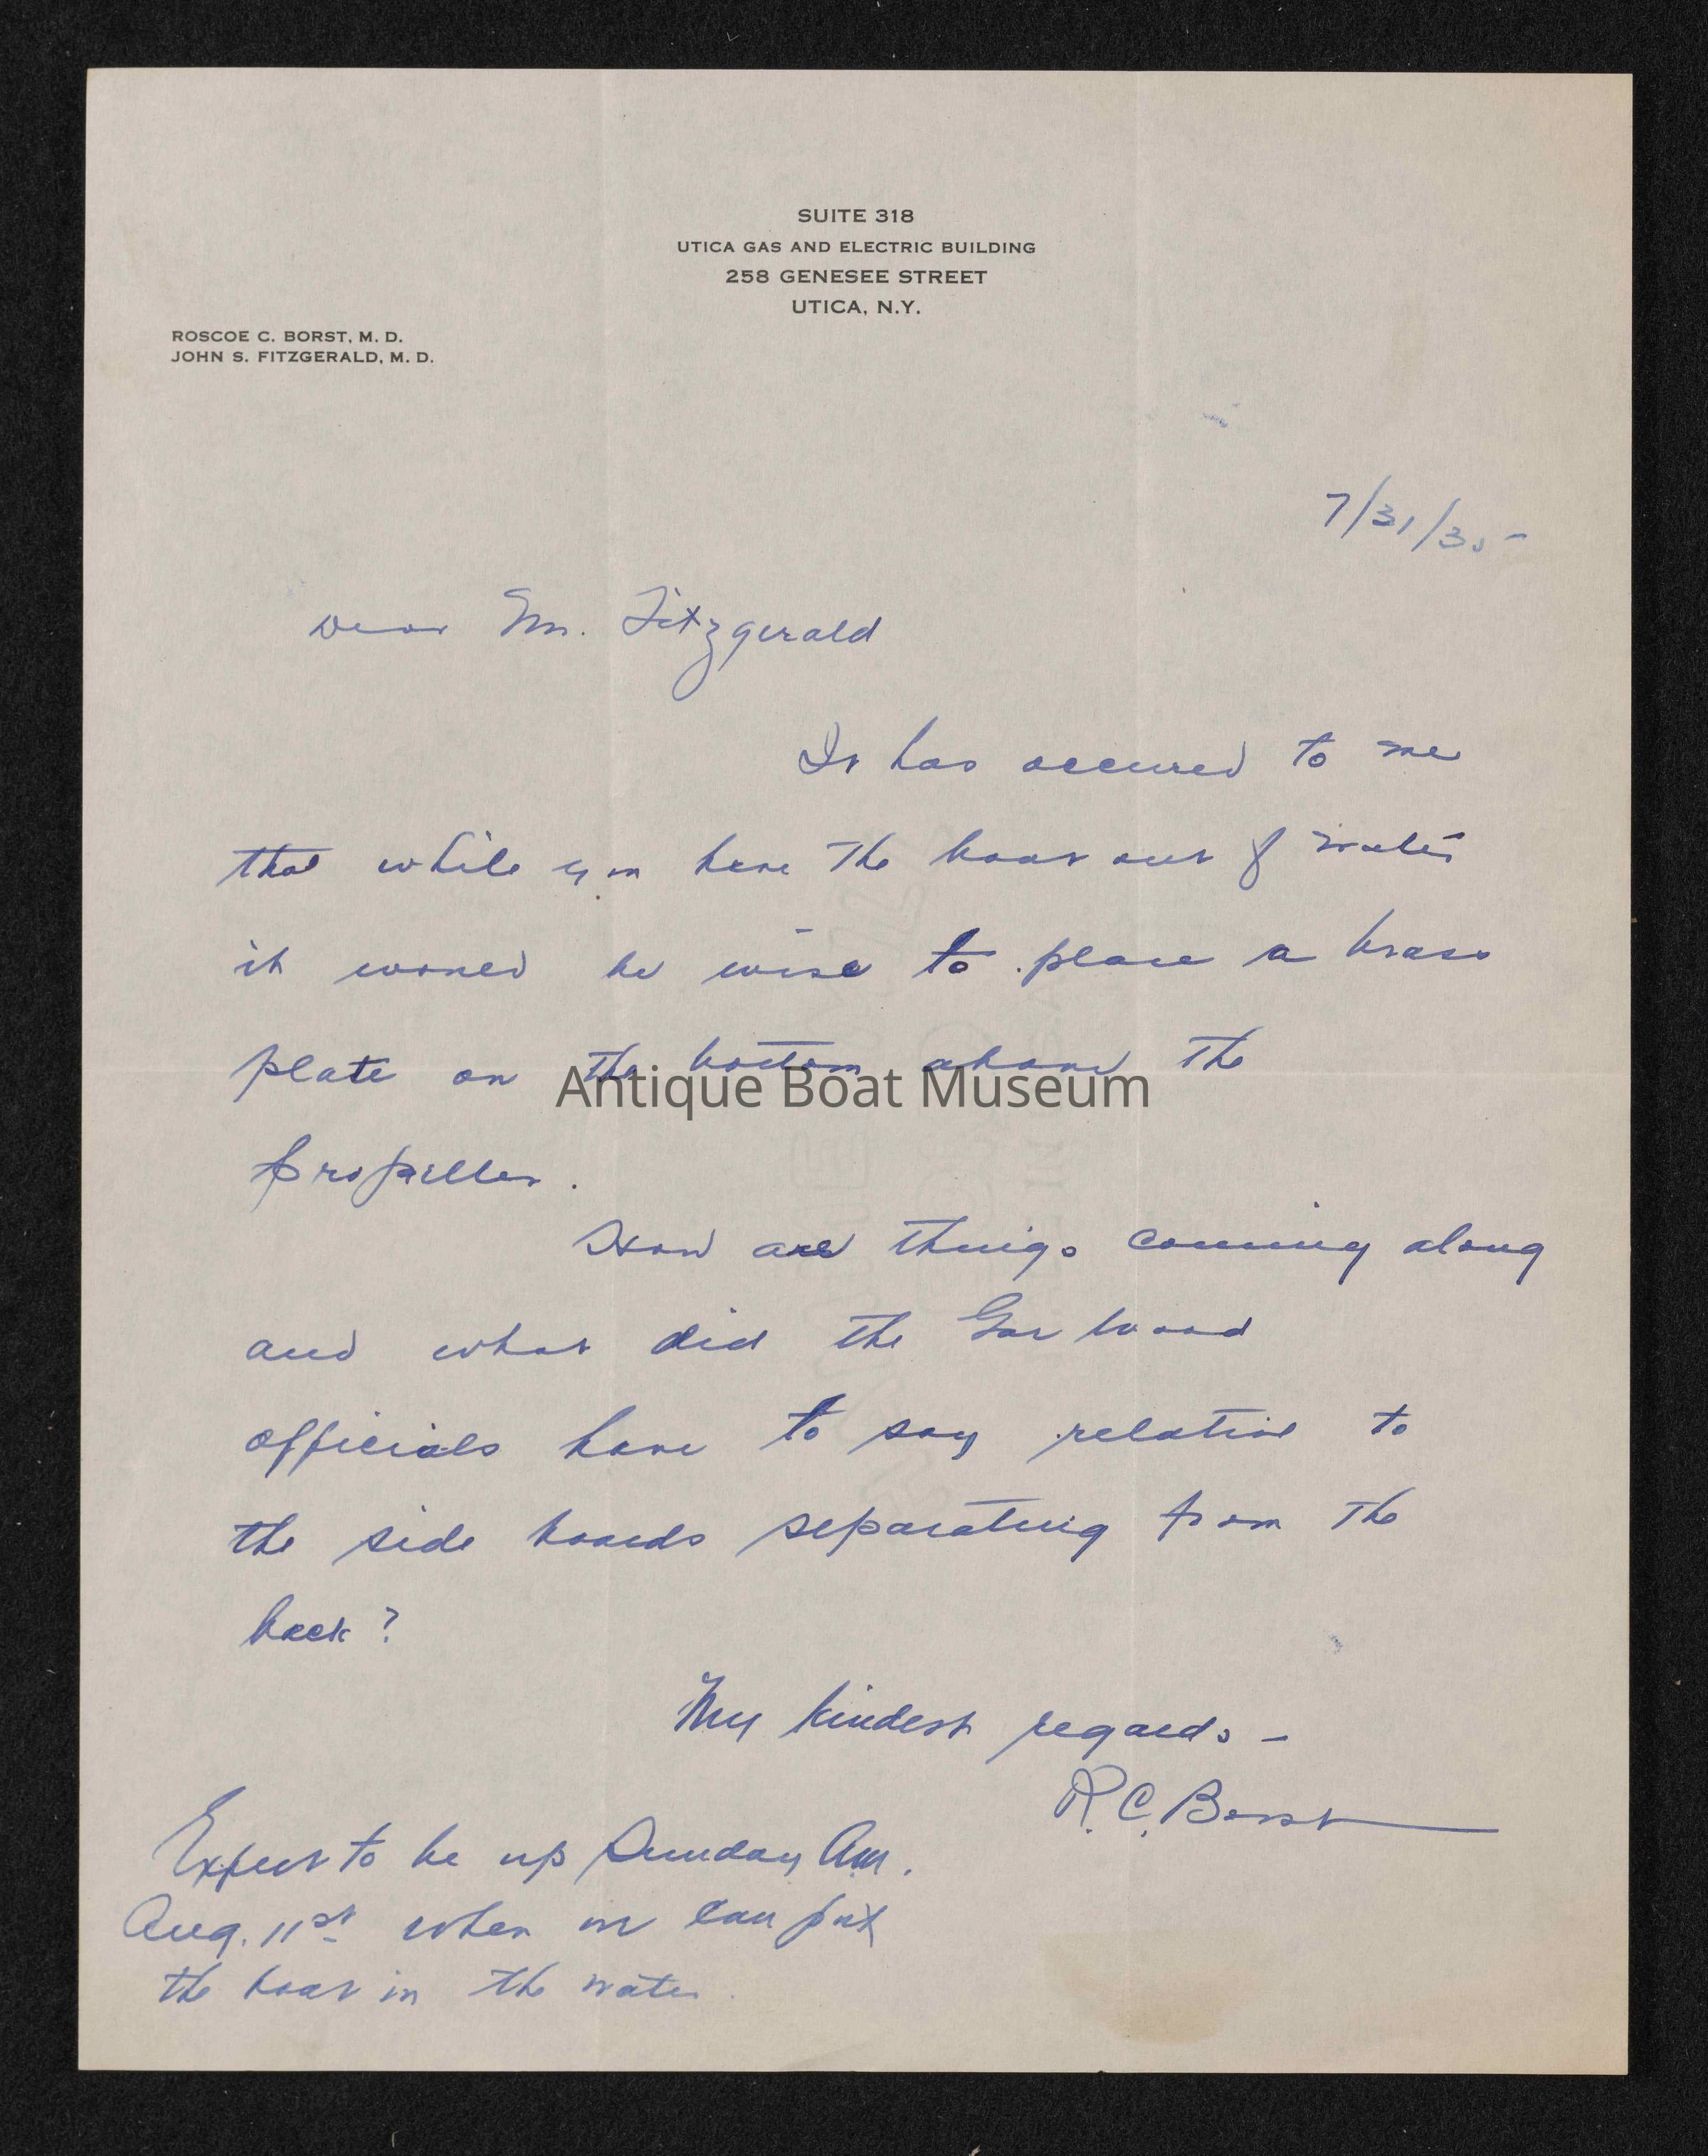 SUITE 318
UTICA GAS AND ELECTRIC BUILDING
258 GENESEE STREET
UTICA, N.Y.
ROSCOE C. BORST, M. D.
JOHN S. FITZGERALD, M. D.
7/31/35-
Dear Mr. Fitzgerald
It has occured to me
that while you have the boat out of water
it would be wise to place a brass
plate on the bottom above the
propeller.
Antique Boat Museum
How are things coming along
and what did the Gar Wood
officials have to say relative to
the side boards separating from the
back?
My kindest regards -
R. C. Borst
Expect to be up Sunday Am.
Aug. 11st when we can put
the boat in the water.